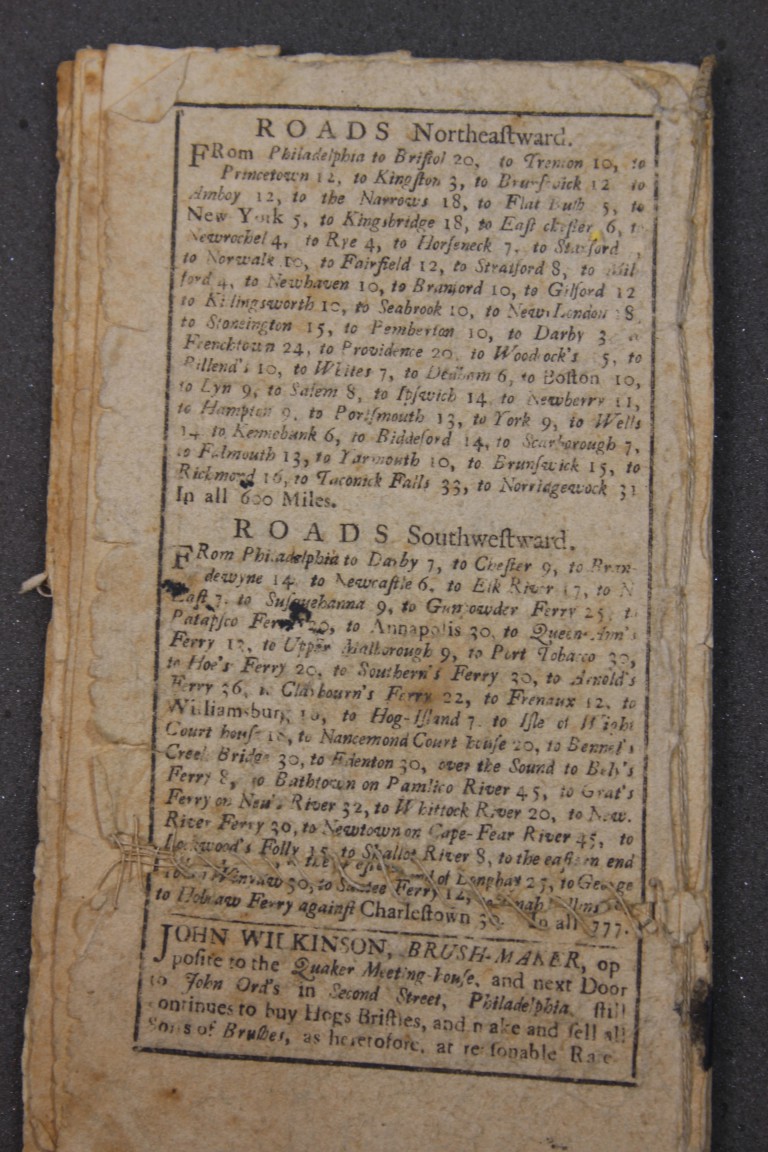 ROADS Northeaſtward.
FRom Philadelphia to Briſtol 20, to Trenton 10, to
Princetown 12, to Kingſton 3, to Brunſwick 12 to
Amboy 12, to the Narrows 18, to Flat Buſh 5, to
New York 5, to Kingsbridge 18, to Eaſt cheſter 6, t
Newrochel 4, to Rye 4, to Horſeneck 7, to Stanford
to Norwalk 10, to Fairfield 12, to Stratford 8, to Mil
ford 4, to Newhaven 10, to Branford 10, to Gilford 12
to Killingsworth 10, to Seabrook 10, to New London 18,
to Stoneington 15, to Pemberton 10, to Darby 3
Frenchtown 24, to Providence 20, to Woodcock's 15, to
Billend's 10, to Whites 7, to Dedham 6, to Boſton 10,
to Lyn 9, to Salem 8, to Ipſwich 14, to Newberry 11,
to Hampton 9, to Portſmouth 13, to York 9, to Wells
14, to Kennebunk 6, to Biddeford 14, to Scarborough 7,
to Falmouth 13, to Yarmouth 10, to Brunſwick 15, to
Richmond 16, to Taconick Falls 33, to Norridgewock 31
In all 600 Miles.
ROADS Southweſtward.
FRom Philadelphia to Darby 7, to Cheſter 9, to Bran-
dewyne 14, to Newcaſtle 6, to Elk River 17, to N
Eaſt 7, to Suſquehanna 9, to Gunpowder Ferry 25, t
Patapſco Ferry 20, to Annapolis 30, to Queen-Ann's
Ferry 13, to Upper Malborough 9, to Port Tobacco 30,
to Hoe's Ferry 20, to Southern's Ferry 30, to Arnold's
Ferry 36, to Claybourn's Ferry 22, to Freneaux 12, to
Williamsburg 16, to Hog-Iſland 7, to Iſle of Wight
Court houſe 18, to Nancemond Court houſe 20, to Bennet's
Creek Bridge 30, to Edenton 30, over the Sound to Bely's
Ferry 8, to Bathtown on Pamlico River 45, to Grat's
Ferry on Neu's River 32, to Whittock River 20, to New-
River Ferry 30, to Newtown on Cape-Fear River 45, to
Lockwood's Folly 15, to Shallot River 8, to the eaſtern end
of Longbay 25, to George
30, to Santee Ferry 12,
to Hobcaw Ferry againſt Charleſtown 30. In all 777.
JOHN WILKINSON, BRUSH-MAKER, op
poſite to the Quaker Meeting-houſe, and next Door
to John Ord's in Second Street, Philadelphia, ſtill
continues to buy Hogs Briſtles, and make and ſell all
Sorts of Bruſhes, as heretofore, at reaſonable Rate